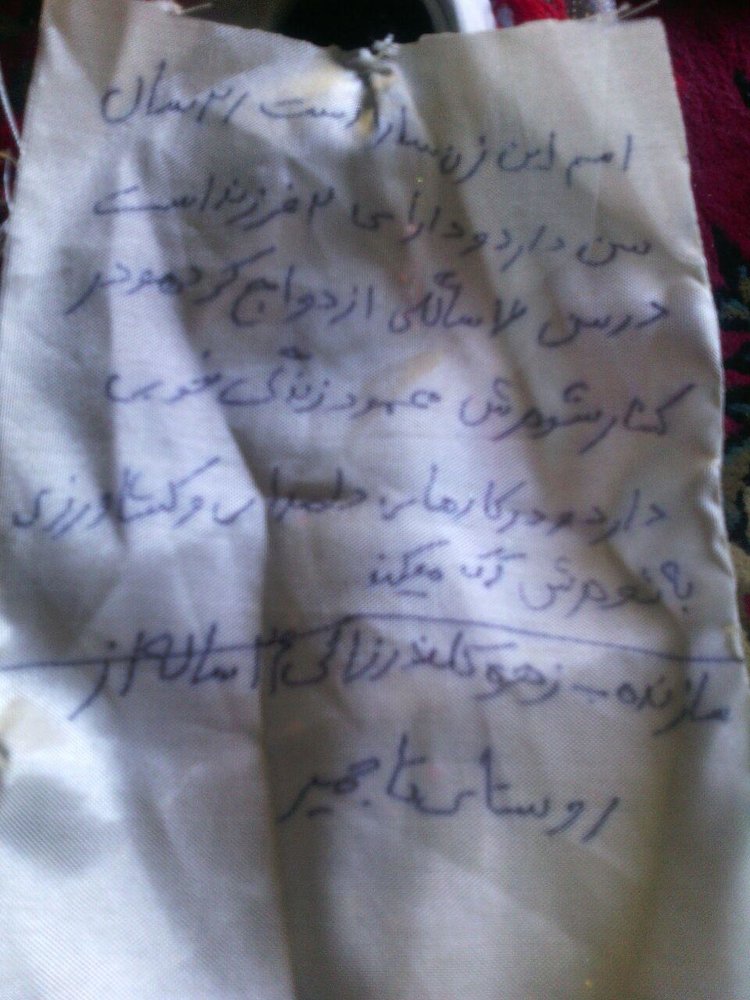 اسم این زن سارا است ۲۱ سال
سن دارد و دارای ۲ فرزند است
در سن ۱۷ سالگی ازدواج کرده و در
کنار شوهرش خود زندگی خوبی
دارد و در کارهای دامداری و کشاورزی
به شوهرش کمک میکند
سازنده - زهو کلندرزائی ۲۶ ساله از
روستای تاجمیر